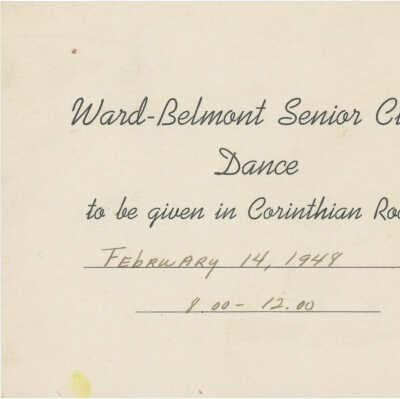 Ward-Belmont Senior Cl
Dance
to be given in Corinthian Roo
February 14, 1948
9.00 - 12.00